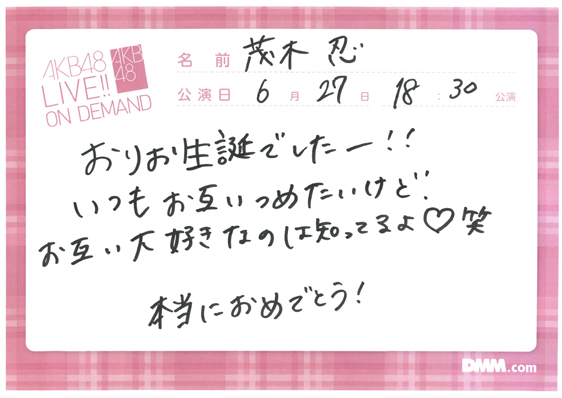 AKB48
LIVE!!
ON DEMAND
AKB
48
名前 茂木 忍
公演日 6月 27日 18:30 公演
おりお生誕でしたー!!
いつもお互いつめたいけど!
お互い大好きなのは知ってるよ♡笑
本当におめでとう!
DMM.com